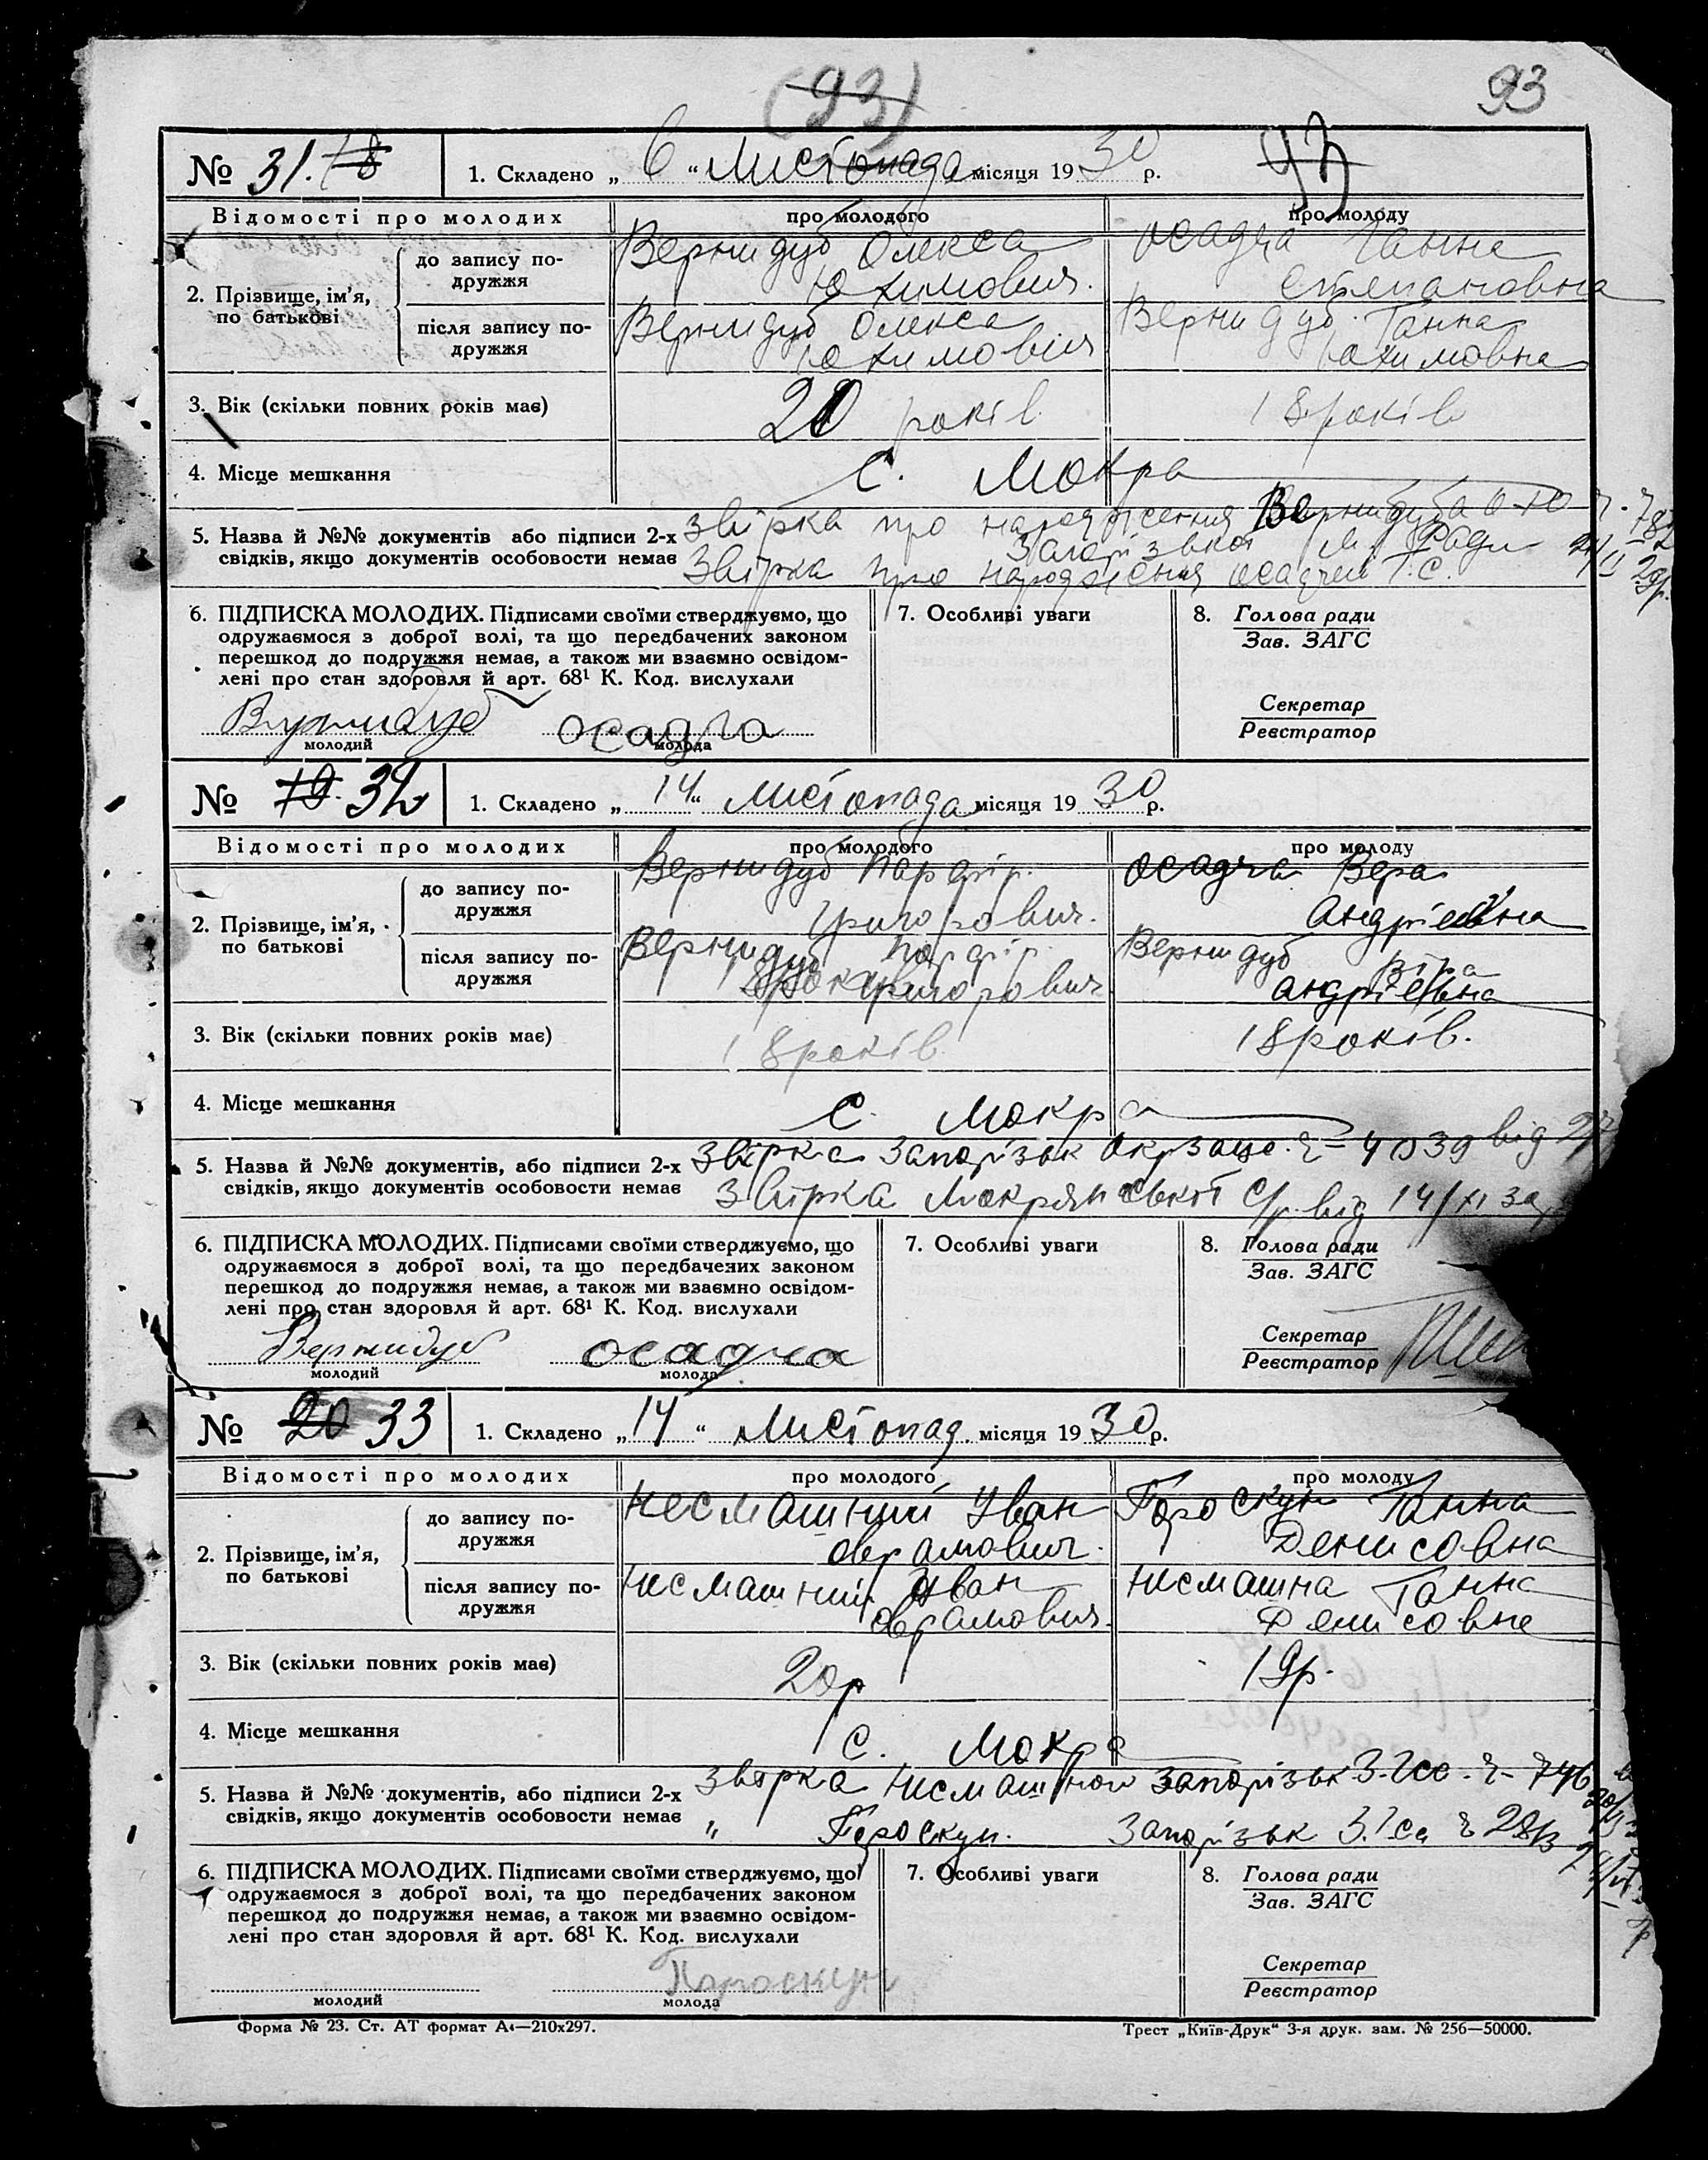 (93) 93
№ 31. 18 1. Складено „ 6 “ Листопада місяця 19 30 р. 93
Відомості про молодих про молодого про молоду
2. Прізвище, ім’я, по батькові
до запису подружжя
Вернидуб Олекса
Юхимович.
Осадча Ганна
Степановна
після запису подружжя
Вернидуб Олекса
Юхимович
Вернидуб Ганна
Юхимовна
3. Вік (скільки повних років має) 20 років 18 років
4. Місце мешкання С. Мокра
5. Назва й №№ документів або підписи 2-х
свідків, якщо документів особовости немає
Звірка про народження Вернидуба О Ю
Запорізької М. Ради
Звірка про народження Осадчей Г. С.
6. ПІДПИСКА МОЛОДИХ. Підписами своїми стверджуємо, що
одружаємося з доброї волі, та що передбачених законом
перешкод до подружжя немає, а також ми взаємно освідом-
лені про стан здоровля й арт. 68¹ К. Код. вислухали
7. Особливі уваги
8. Голова ради
Зав. ЗАГС
Секретар
Реєстратор
Вернидуб Осадча
молодий молода
№ 19. 32 1. Складено „ 14 “ Листопада місяця 19 30 р.
Відомості про молодих про молодого про молоду
2. Прізвище, ім’я, по батькові
до запису подружжя
Вернидуб Парфір.
Григорович.
Осадча Вера
Андріевна
після запису подружжя
Вернидуб Парфір
Григорович
Вернидуб Віра
Андріевна
3. Вік (скільки повних років має) 18 років 18 років.
4. Місце мешкання С. Мокра
5. Назва й №№ документів, або підписи 2-х
свідків, якщо документів особовости немає
Звірка Запорізьк 4039 від
Звірка Мокрянської С/р. від 14/XI
6. ПІДПИСКА МОЛОДИХ. Підписами своїми стверджуємо, що
одружаємося з доброї волі, та що передбачених законом
перешкод до подружжя немає, а також ми взаємно освідом-
лені про стан здоровля й арт. 68¹ К. Код. вислухали
7. Особливі уваги
8. Голова ради
Зав. ЗАГС
Секретар
Реєстратор
Вернидуб Осадча
молодий молода
№ 20 33 1. Складено „ 14 “ Листопад. місяця 19 30 р.
Відомості про молодих про молодого про молоду
2. Прізвище, ім’я, по батькові
до запису подружжя
Несмашний Иван
Аврамович.
Пароскун Ганна
Денисовна
після запису подружжя
Несмашний Иван
Аврамович.
Несмашна Ганна
Денисовна
3. Вік (скільки повних років має) 20р 19р.
4. Місце мешкання С. Мокра
5. Назва й №№ документів, або підписи 2-х
свідків, якщо документів особовости немає
Звірка Несмашного Запорізьк 746
„ Пароскун. Запорізьк
6. ПІДПИСКА МОЛОДИХ. Підписами своїми стверджуємо, що
одружаємося з доброї волі, та що передбачених законом
перешкод до подружжя немає, а також ми взаємно освідом-
лені про стан здоровля й арт. 68¹ К. Код. вислухали
7. Особливі уваги
8. Голова ради
Зав. ЗАГС
Секретар
Реєстратор
Пароскун
молодий молода
Форма № 23. Ст. АТ формат А4—210х297. Трест „Київ-Друк“ 3-я друк. зам. № 256—50000.